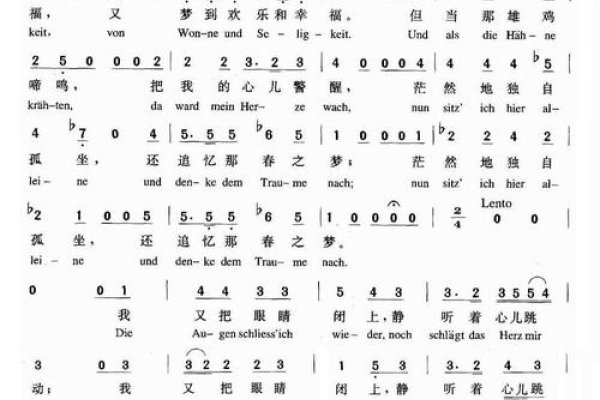 福， 又 梦 到 欢 乐 和 幸 福。 但 当 那 雄 鸡
keit, von Won-ne und Se-lig-keit. Und als die Häh-ne
2 5 0 0 0 2 2 2 3· 2 3 1 0 2 3 4 4 4 ♭5
啼 鸣， 把 我 的 心 儿 警 醒， 茫 然 地 独 自
krähten, da ward mein Her-ze wach, nun sitz' ich hier al-
4 ♭7 0 4 5· 5 5 5 ♭6 4 0 0 0 1 ♭2 2 4 2
孤 坐， 还 追 忆 那 春 之 梦； 茫 然 地 独 自
lei-ne und den-ke dem Trau-me nach; nun sitz' ich hier al-
♭2 1 0 0 5 5· 5 5 5 ♭6 1 0 0 0 0 2/4 Lento 0 0
孤 坐， 还 追 忆 那 春 之 梦。
lei-ne und den-ke dem Trau-me nach.
0 0 1 4 4 3 3 5 4 3 3· 2 3 5 5 4
我 又 把 眼 睛 闭 上，静 听 着 心儿跳
Die Au-gen schliess'ich wie-der, noch schlägt das Herz mir
3 0 3 3 2 2 2 1 5 4 3
动； 我 又 把 眼 睛 闭 上，静 听 着 心儿跳